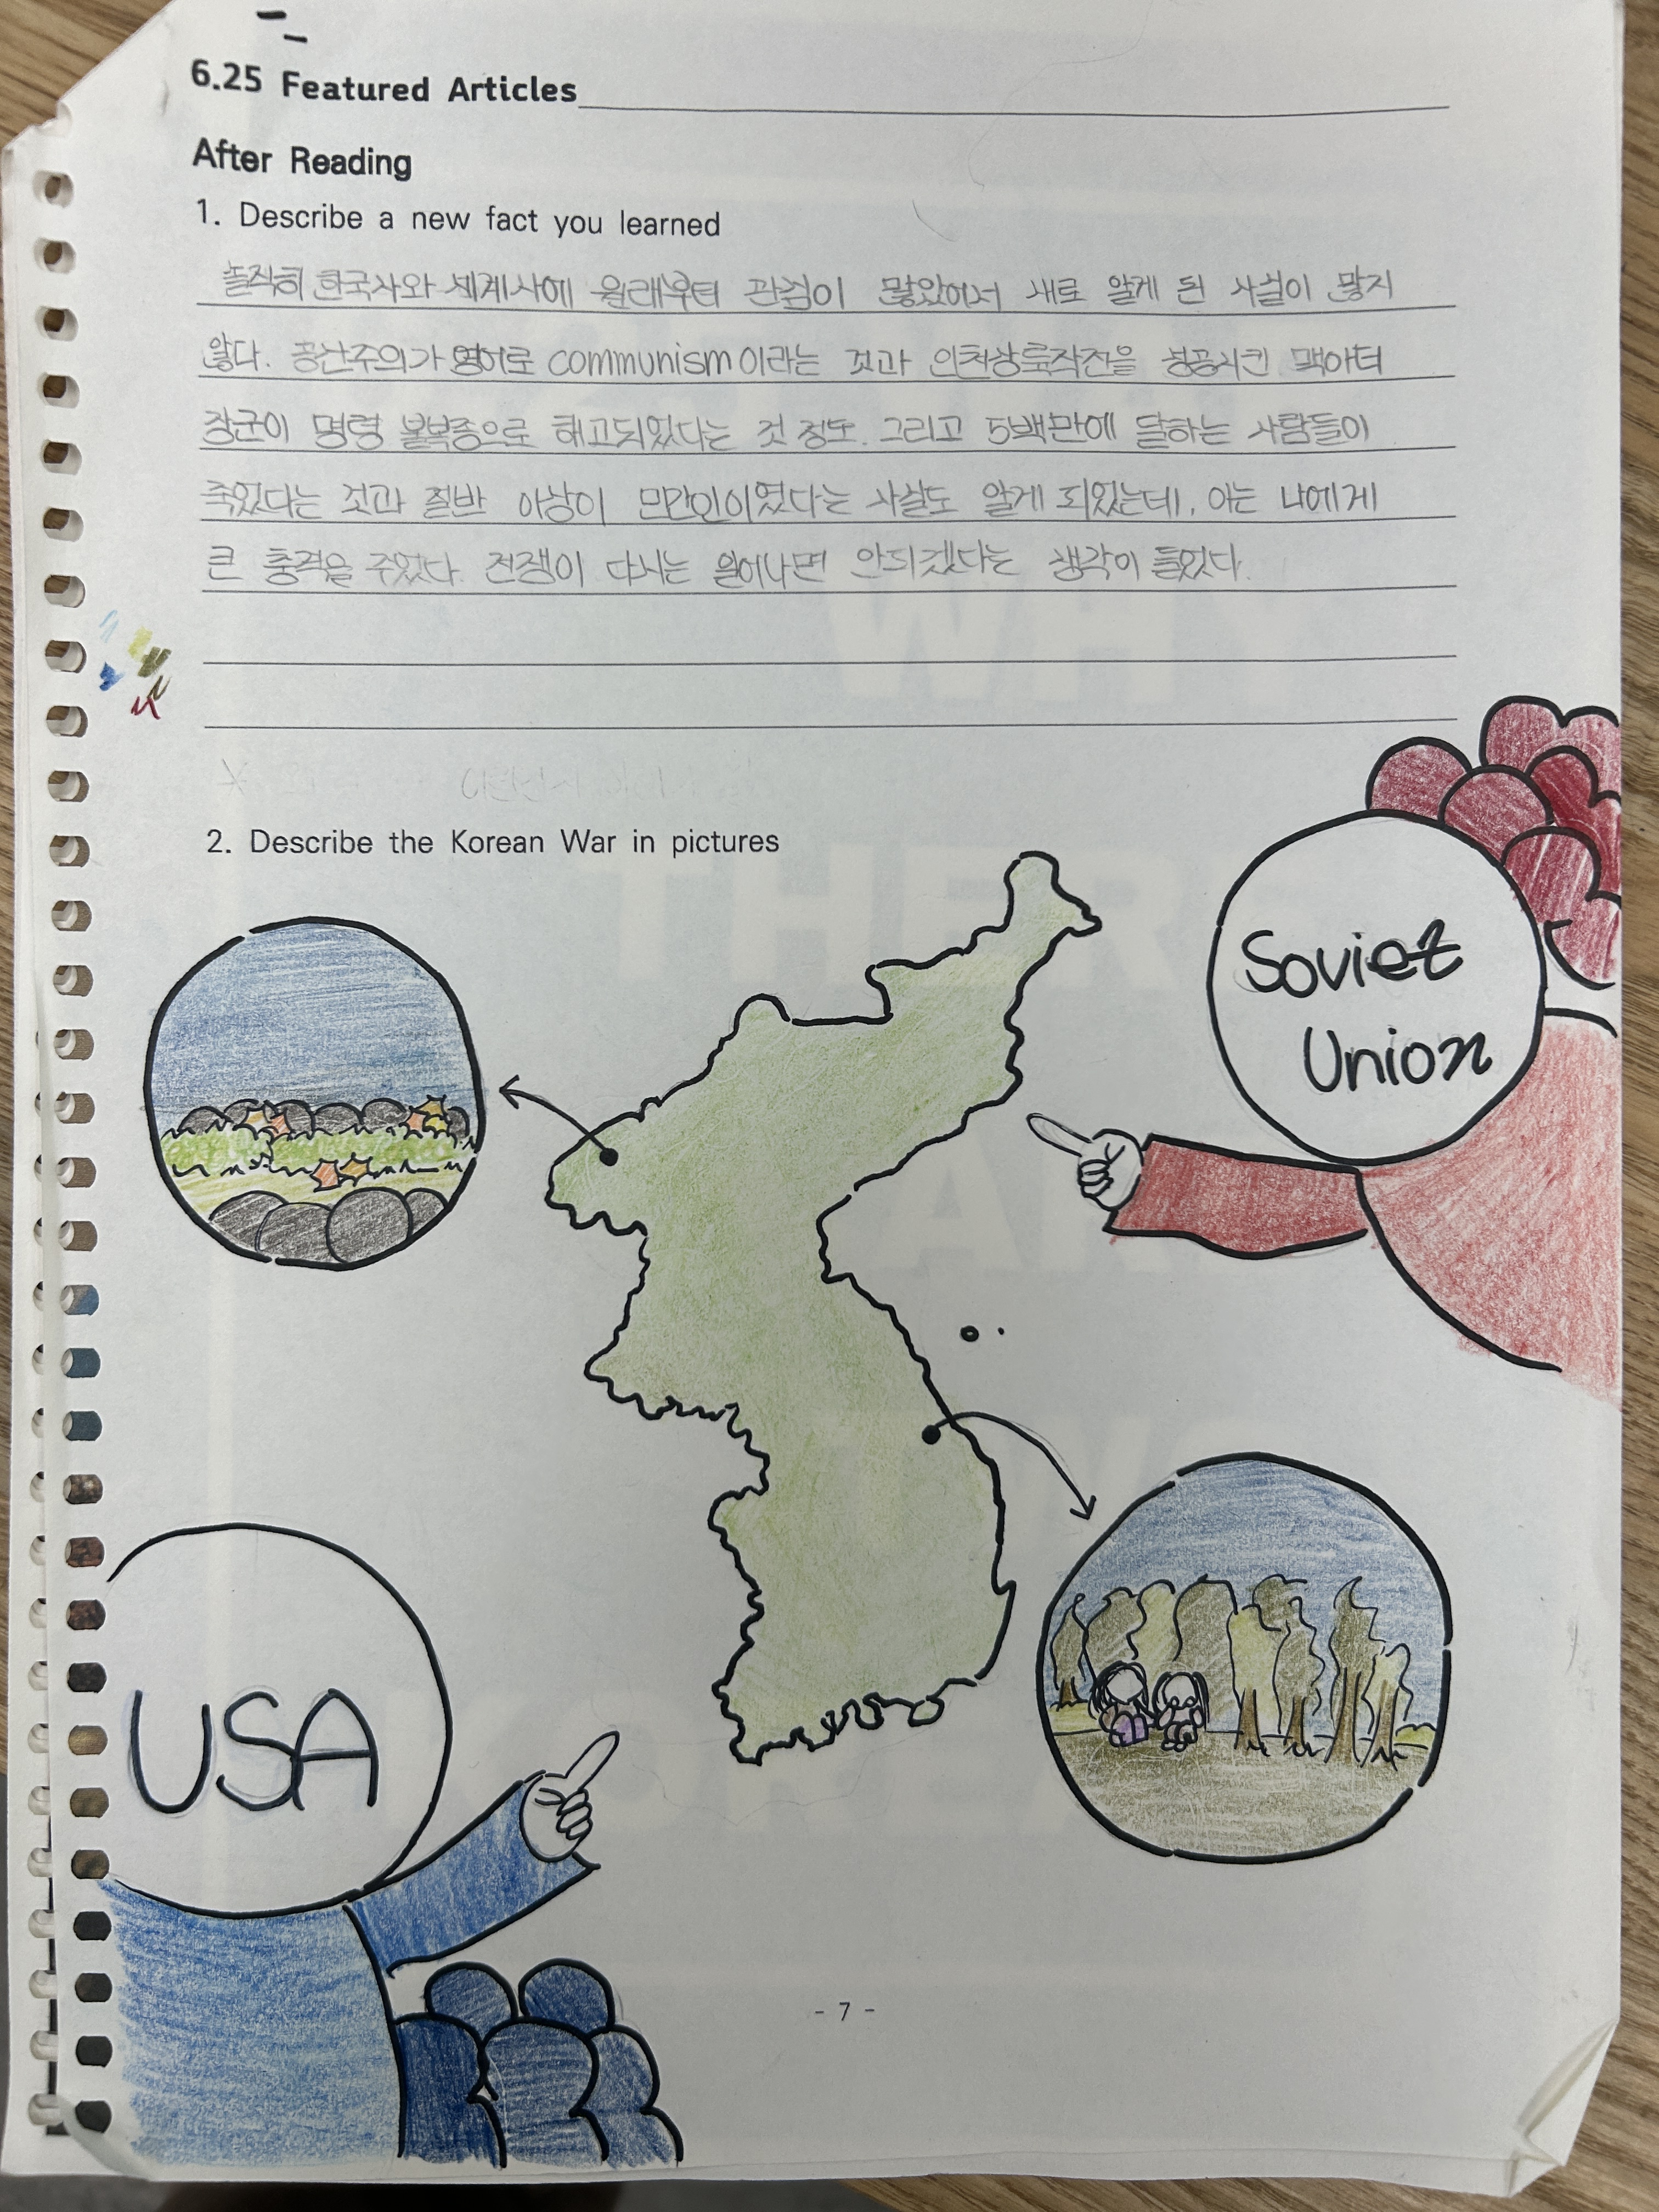 6.25 Featured Articles
After Reading
1. Describe a new fact you learned
솔직히 한국사와 세계사에 원래부터 관심이 많았어서 새로 알게 된 사실이 많지
않다. 공산주의가 영어로 communism이라는 것과 인천상륙작전을 성공시킨 맥아더
장군이 명령 불복종으로 해고되었다는 것 정도. 그리고 5백만에 달하는 사람들이
죽었다는 것과 절반 이상이 민간인이었다는 사실도 알게 되었는데, 이는 나에게
큰 충격을 주었다. 전쟁이 다시는 일어나면 안되겠다는 생각이 들었다.
2. Describe the Korean War in pictures
Soviet
Union
USA
- 7 -